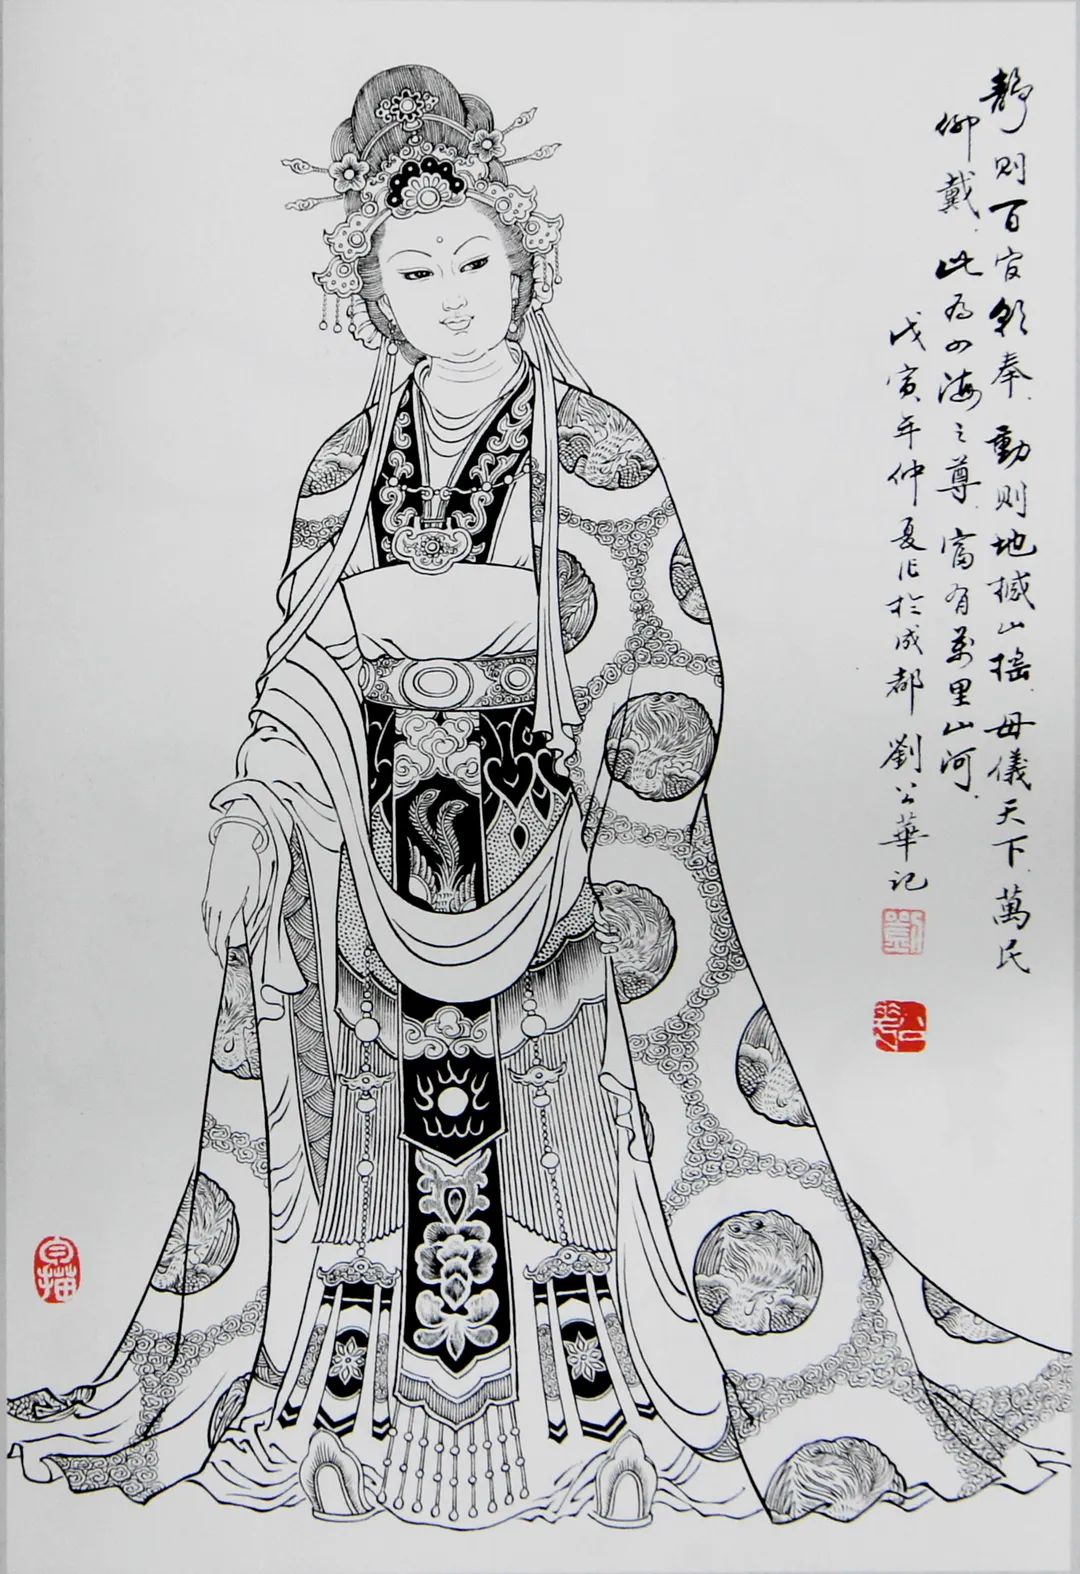 靜則百官朝奉動則地撼山搖母儀天下萬民
仰戴此為四海之尊富有萬里山河
戊寅年仲夏作於成都劉公華記
劉
公華
白描